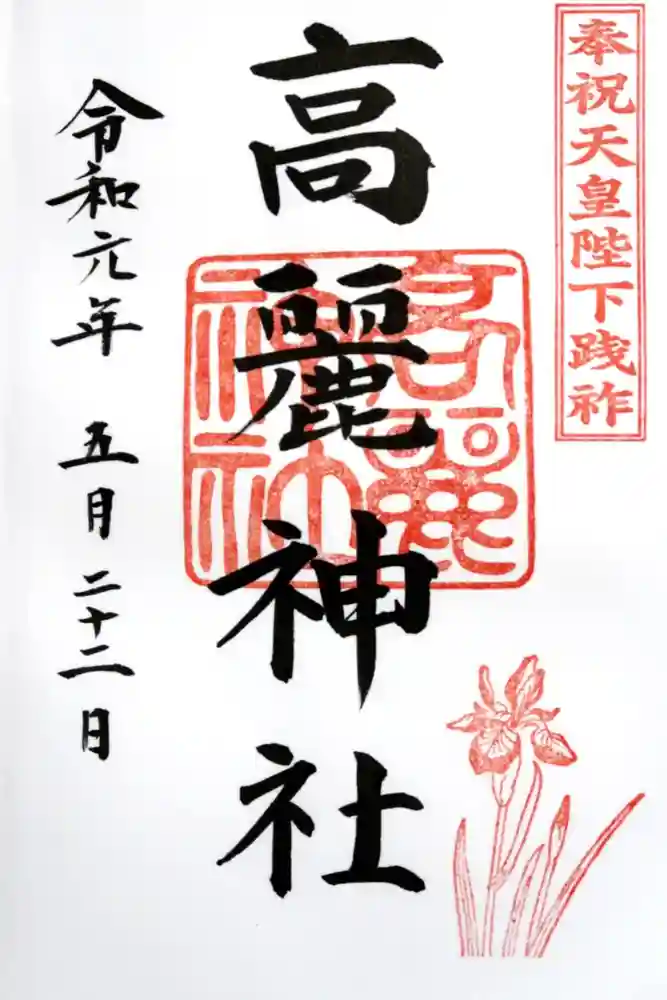 奉祝天皇陛下践祚
高麗神社
高麗神社
令和元年 五月二十二日